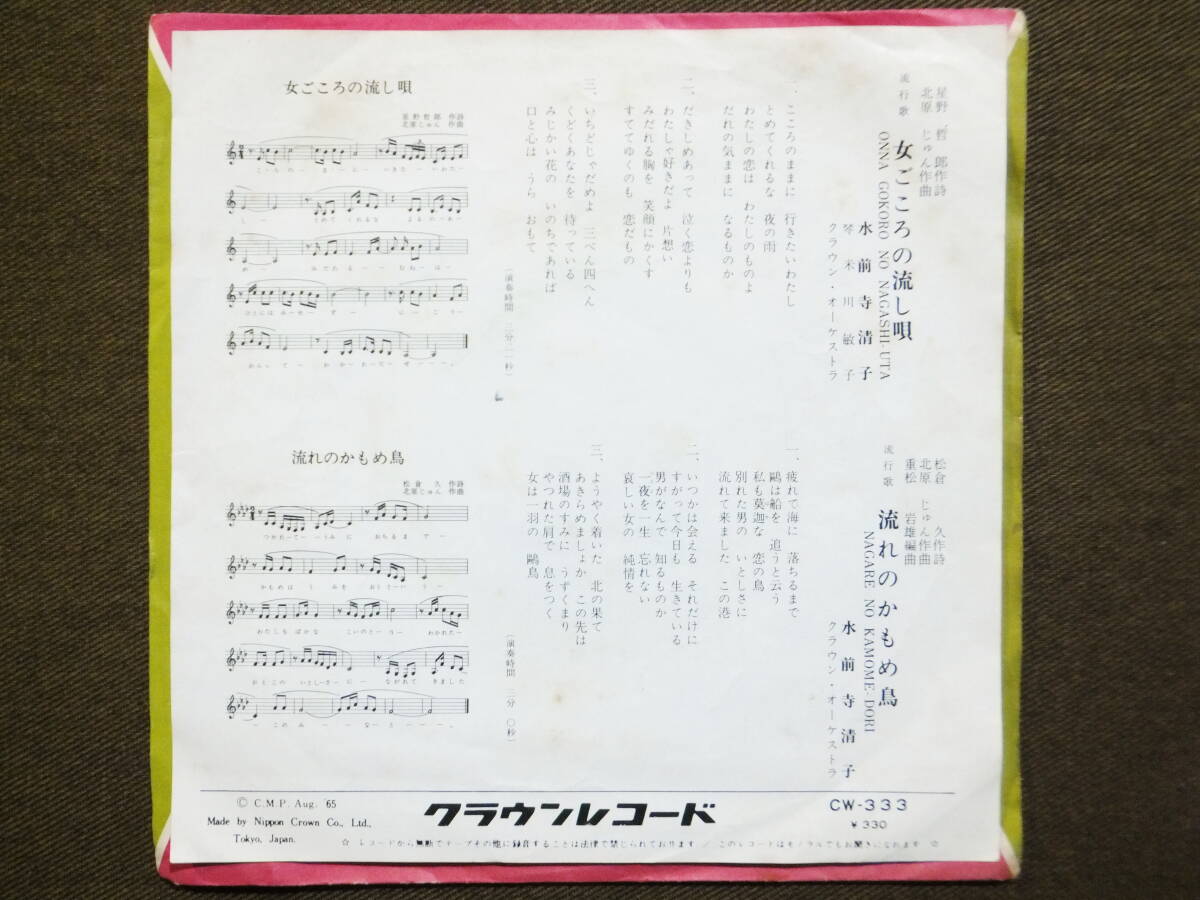 星野哲郎作詩
北原じゅん作曲
流行歌 女ごころの流し唄
ONNA GOKORO NO NAGASHI-UTA
水前寺清子
琴 米川敏子
クラウン・オーケストラ
一、こころのままに 行きたいわたし
とめてくれるな 夜の雨
わたしの恋は わたしのものよ
だれの気ままに なるものか
二、だきしめあって 泣く恋よりも
わたしゃ好きだよ 片想い
みだれる胸を 笑顔にかくす
すててゆくのも 恋だもの
三、いちどじゃだめよ 三べん四へん
くどくあなたを 待っている
みじかい花の いのちであれば
口と心は うら おもて
女ごころの流し唄
星野哲郎 作詩
北原じゅん 作曲
松倉久作詩
北原じゅん作曲
重松岩雄編曲
流行歌 流れのかもめ鳥
NAGARE NO KAMOME-DORI
水前寺清子
クラウン・オーケストラ
一、疲れて海に 落ちるまで
鷗は船を 追うと云う
私も莫迦な 恋の鳥
別れた男の いとしさに
流れて来ました この港
二、いつかは会える それだけに
すがって今日も 生きている
男がなんで 知るものか
一夜を一生 忘れない
哀しい女の 純情を
三、ようやく着いた 北の果て
あきらめましょか この先は
酒場のすみに うずくまり
やつれた肩で 息をつく
女は一羽の 鷗鳥
流れのかもめ鳥
松倉久 作詩
北原じゅん 作曲
つかれーてー うみに おちるまでー
© C.M.P. Aug. '65
Made by Nippon Crown Co., Ltd.,
Tokyo, Japan.
クラウンレコード
CW-333
¥330
☆ レコードから無断でテープその他に録音することは法律で禁じられております / このレコードはモノラルでもお聞きになれます ☆